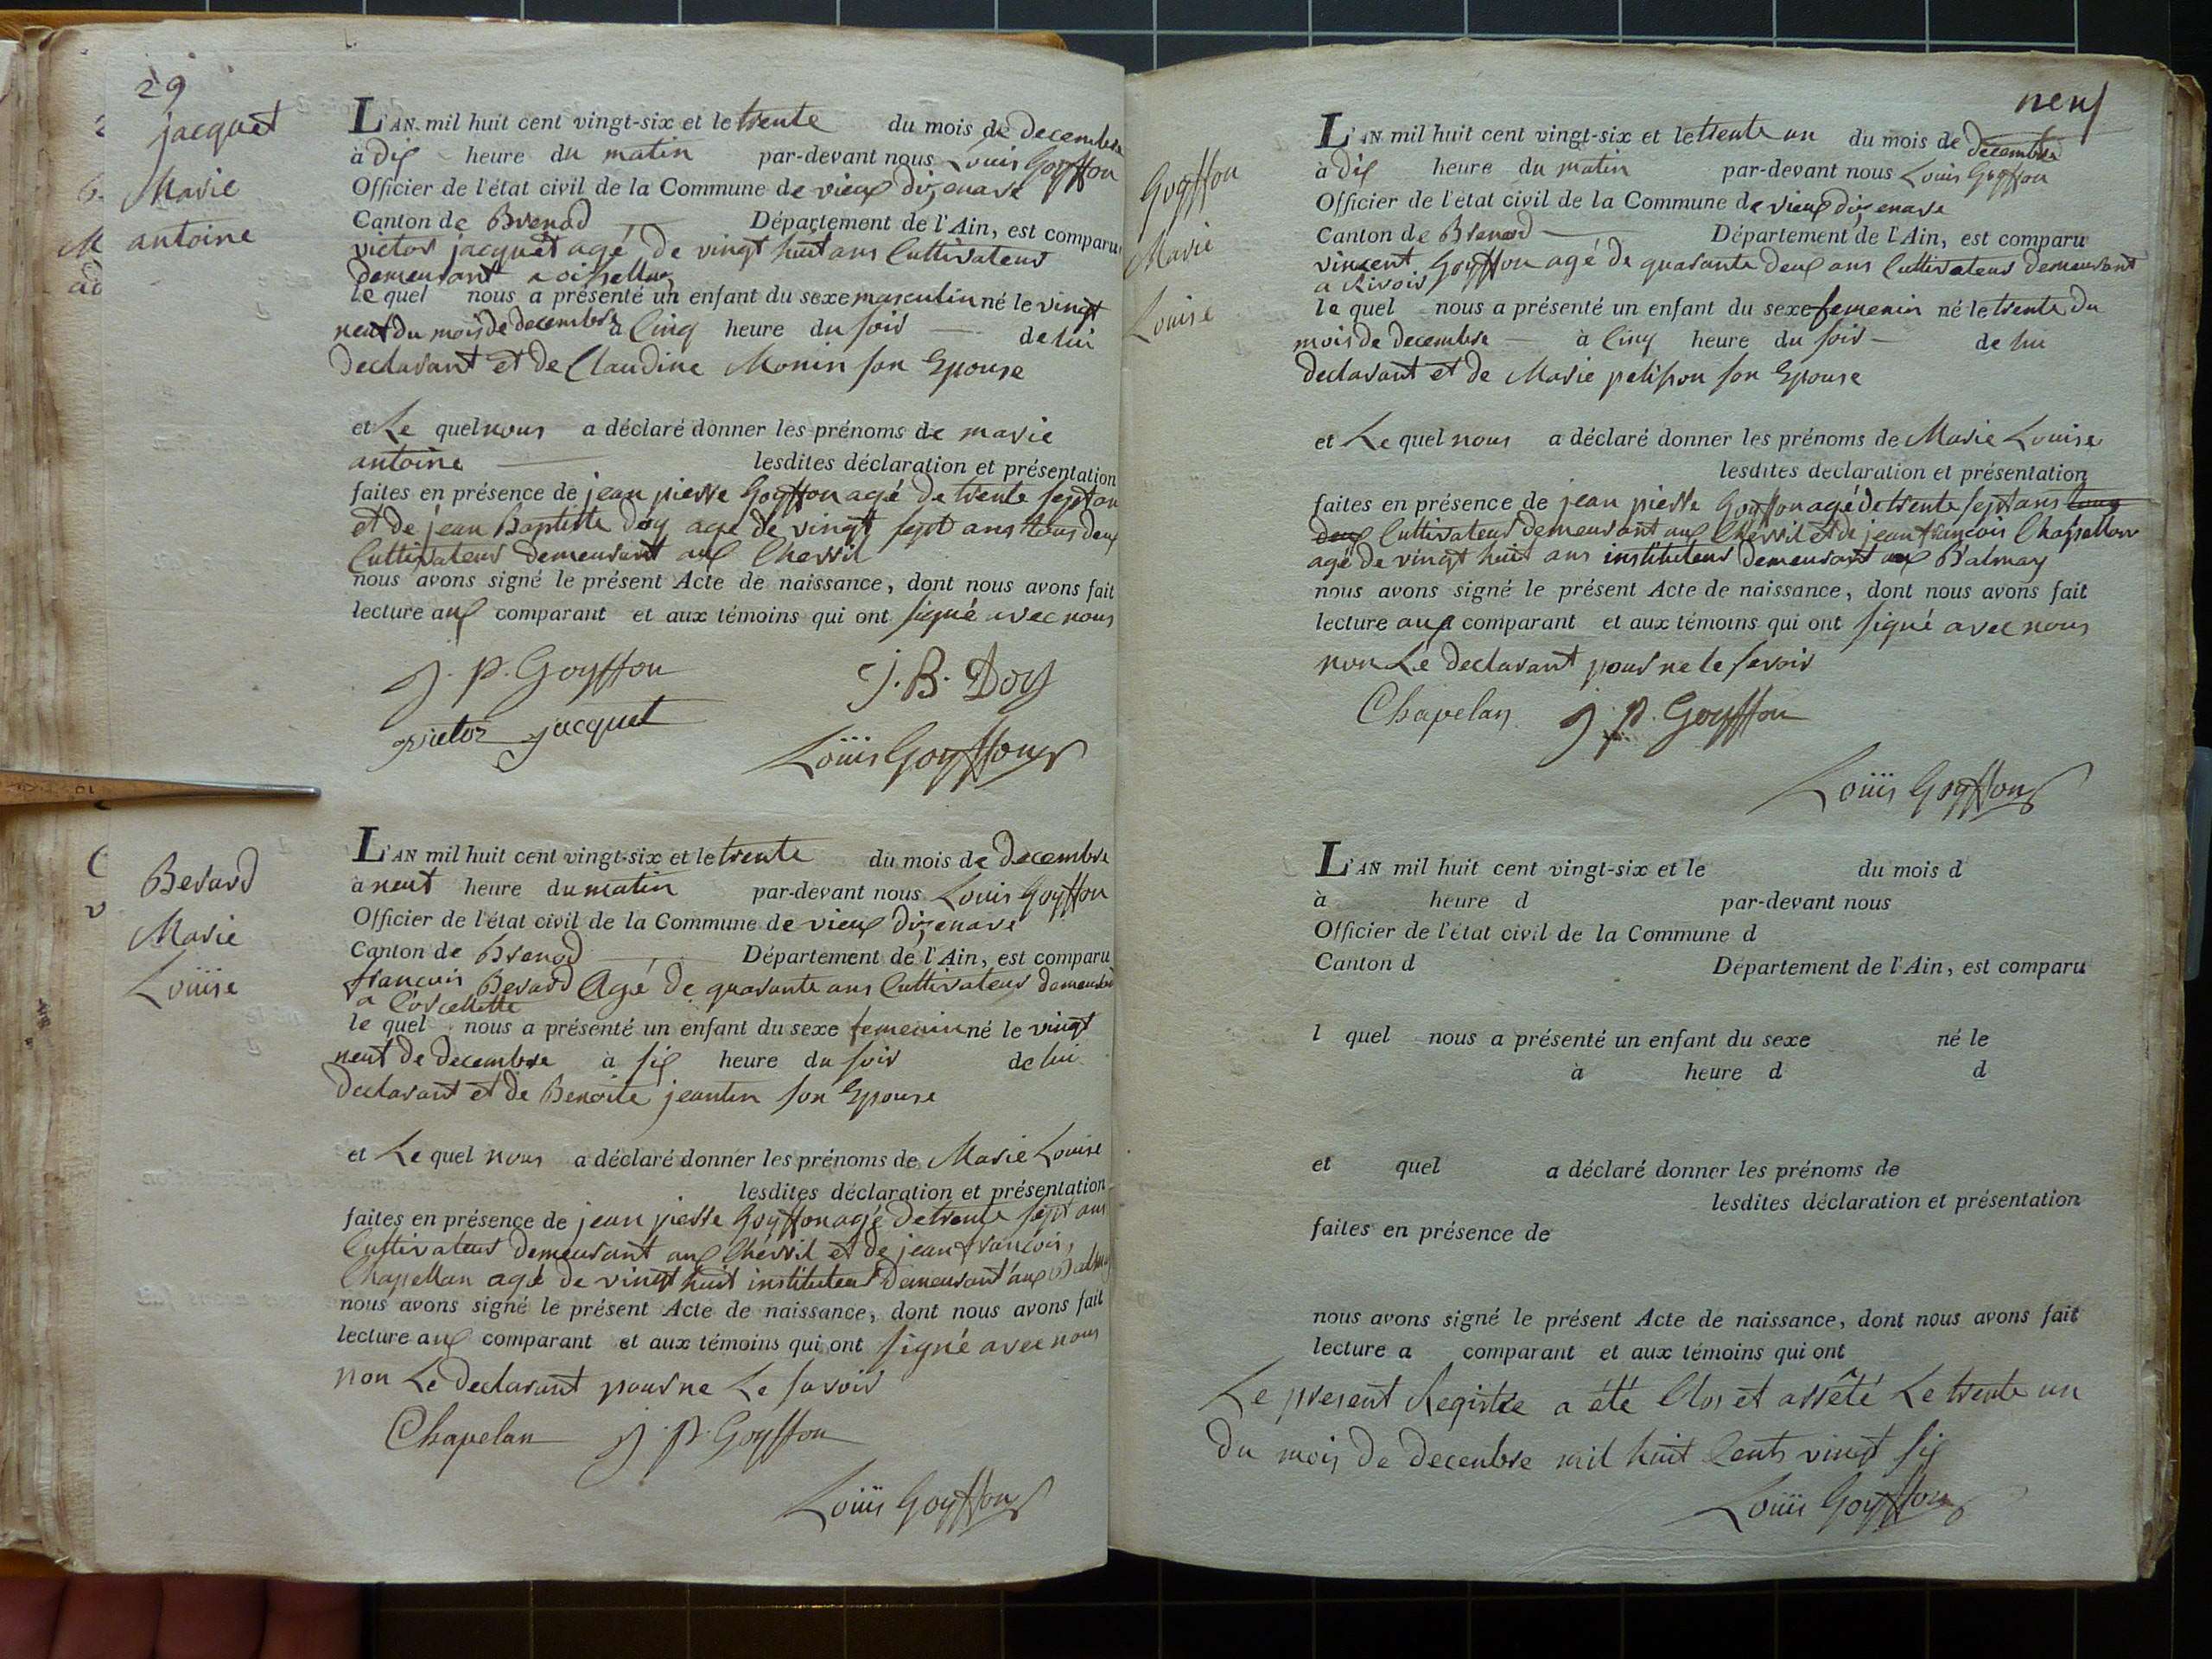 29
jacquet
Marie
antoine
L'AN mil huit cent vingt-six et le trente du mois de decembre
à dix heure du matin par-devant nous Louis Goyffon
Officier de l'état civil de la Commune de vieux dizenave
Canton de Brenod Département de l'Ain, est comparu
victor jacquet agé de vingt huit ans Cultivateur
demeurant a
le quel nous a présenté un enfant du sexe masculin né le vingt
neuf du mois de decembre à Cinq heure du soir de lui
declarant et de Claudine Monin son Epouse
et Le quel nous a déclaré donner les prénoms de marie
antoine lesdites déclaration et présentation
faites en présence de jean pierre Goyffon agé de trente sept an
et de jean Baptiste Doy agé de vingt sept ans tous deux
Cultivateur demeurant aux Chevril
nous avons signé le présent Acte de naissance, dont nous avons fait
lecture aux comparant et aux témoins qui ont signé avec nous
J. P. Goyffon J. B. Doy
victor jacquet Loüis Goyffon
Berard
Marie
Loüise
L'AN mil huit cent vingt-six et le trente du mois de Decembre
à neuf heure du matin par-devant nous Louis Goyffon
Officier de l'état civil de la Commune de vieux dizenave
Canton de Brenod Département de l'Ain, est comparu
francois Berard Agé de quarante ans Cultivateur demeurant
a Corcellette
le quel nous a présenté un enfant du sexe femenin né le vingt
neuf de decembre à six heure du soir de lui
declarant et de Benoite jeantin son Epouse
et Le quel nous a déclaré donner les prénoms de Marie Louise
lesdites déclaration et présentation
faites en présence de jean pierre Goyffon agé de trente sept ans
Cultivateur demeurant aux Chevril et de jean francois
Chapellan agé de vingt huit instituteur demeurant aux Balmay
nous avons signé le présent Acte de naissance, dont nous avons fait
lecture aux comparant et aux témoins qui ont signé avec nous
non Le declarant pour ne Le savoir
Chapelan J. P. Goyffon
Loüis Goyffon
neuf
Goyffon
Marie
Louise
L'AN mil huit cent vingt-six et le trente un du mois de decembre
à dix heure du matin par-devant nous Louis Goyffon
Officier de l'état civil de la Commune de vieux dizenave
Canton de Brenod Département de l'Ain, est comparu
vincent Goyffon agé de quarante deux ans Cultivateur demeurant
a
le quel nous a présenté un enfant du sexe femenin né le trente du
mois de decembre à Cinq heure du soir de lui
declarant et de Marie pelisson son Epouse
et Le quel nous a déclaré donner les prénoms de Marie Louise
lesdites déclaration et présentation
faites en présence de jean pierre Goyffon agé de trente sept ans tous
deux Cultivateur demeurant aux Chevril et de jean francois Chapellan
agé de vingt huit ans instituteur demeurant aux Balmay
nous avons signé le présent Acte de naissance, dont nous avons fait
lecture aux comparant et aux témoins qui ont signé avec nous
non Le declarant pour ne le savoir
Chapelan J. P. Goyffon
Loüis Goyffon
L'AN mil huit cent vingt-six et le du mois d
à heure d par-devant nous
Officier de l'état civil de la Commune d
Canton d Département de l'Ain, est comparu
l quel nous a présenté un enfant du sexe né le
à heure d d
et quel a déclaré donner les prénoms de
lesdites déclaration et présentation
faites en présence de
nous avons signé le présent Acte de naissance, dont nous avons fait
lecture a comparant et aux témoins qui ont
Le present Registre a été Clos et arrêté Le trente un
du mois de decembre mil huit Cents vingt six
Loüis Goyffon